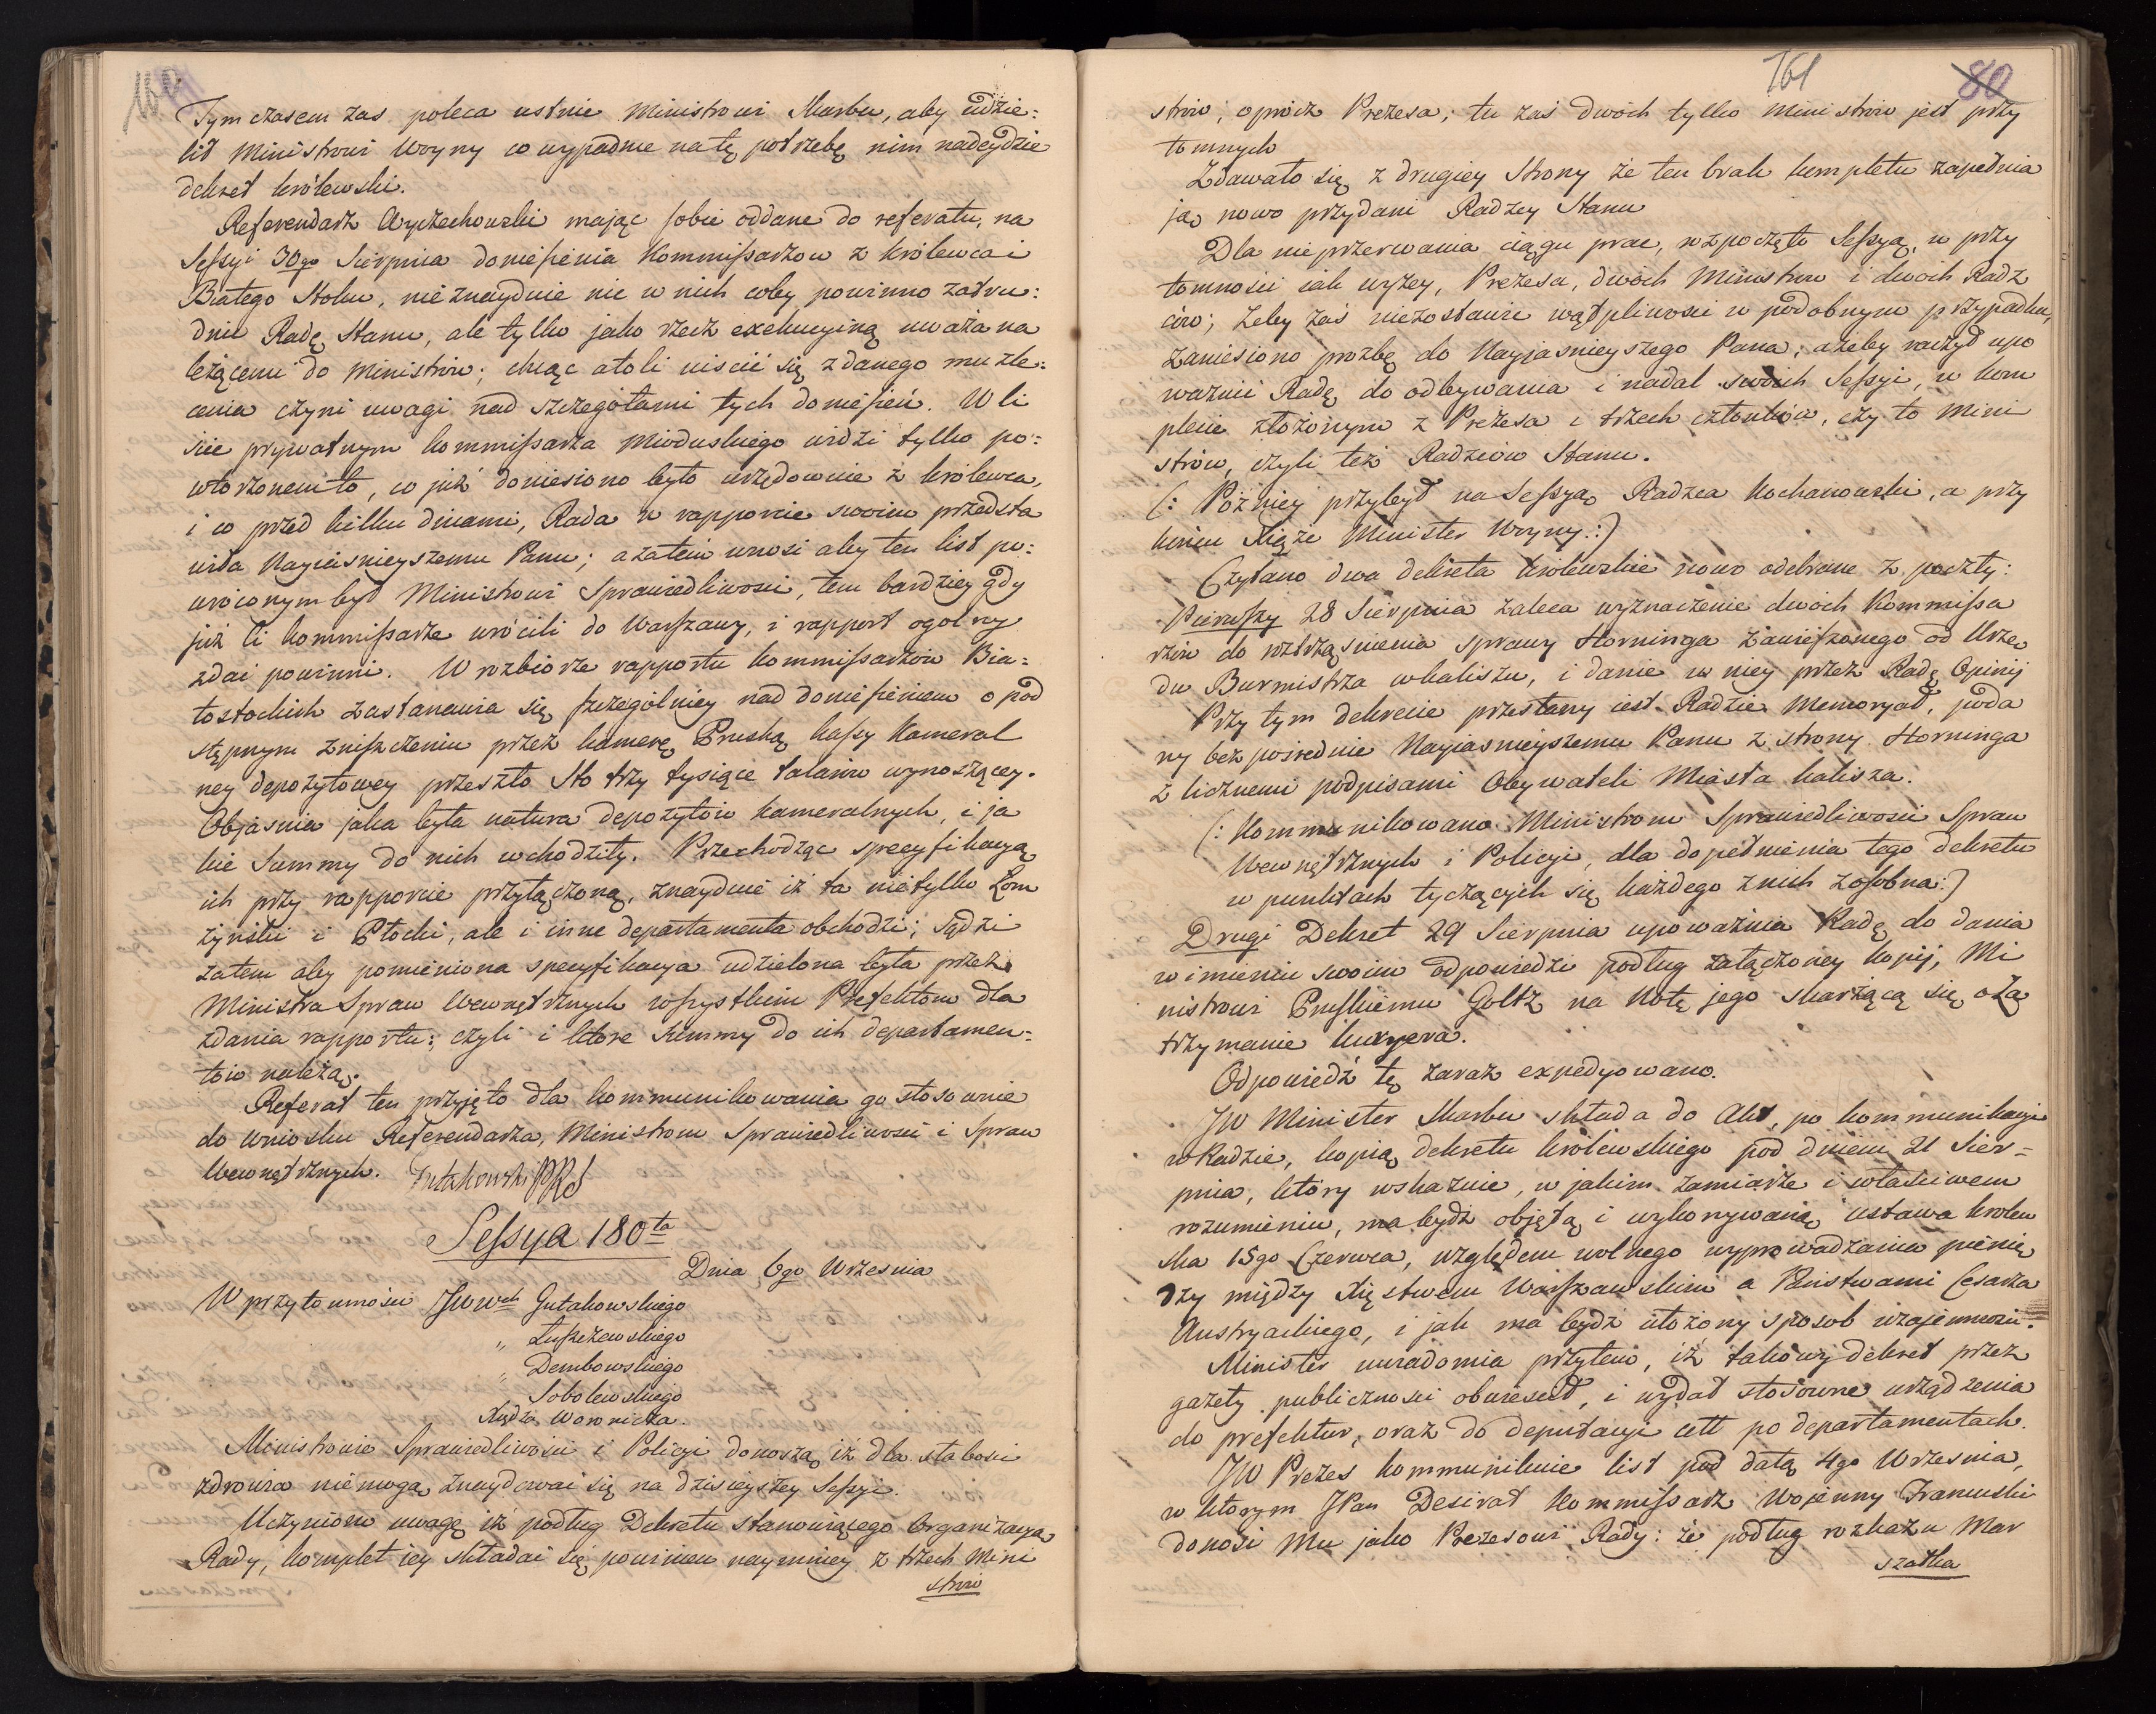 160
Tym czasem zas poleca ustnie Ministrowi Skarbu, aby udzie:
lił Ministrowi Woyny co wypadnie na tę potrzebę nim nadeydzie
dekret królewski.
Referendarz Wyczechowski mając sobie oddane do referatu, na
Sessyi 30go Sierpnia doniesienia Kommissarzow z Królewca i
Białego Stoku, nieznayduie nic w nich coby powinno zatru:
dnić Radę Stanu, ale tylko jako rzecz exekucyiną uważa na
leżącemu do Ministrów; chcąc atoli uiścić się z danego mu zle:
cenia czyni uwagi nad szczegółami tych doniesień. W li
ście prywatnym kommissarza Mioduskiego widzi tylko po:
wtorzonem to, co już doniesiono było urzędownie z Królewca,
i co przed kilku dniami, Rada w rapporcie swoim przedsta
wiła Nayiasnieyszemu Panu; a zatem wnosi aby ten list po:
wróconym był Ministrowi Sprawiedliwosci, tem bardziey gdy
już ci kommissarze wrócili do Warszawy, i rapport ogolny
zdai powinni. W rozbiorze rapportu kommissarzów Bia:
łostockich zastanawia się szczególniey nad doniesieniem o pod
stępnym zniszczeniu przez kamerę Pruską kassy Kameral
ney depozytowey przeszło sto trzy tysiące talarów wynoszącey.
Objasnia jaka była natura depozytów kameralnych, i ja
kie Summy do nich wchodziły. Przechodząc specyfikacyą
ich przy rapporcie przyłączoną, znayduie iż ta nietylko Łom
żyński i Płocki, ale i inne departamenta obchodzi; sądzi
zatem aby pomieniona specyfikacya udzielona była przez
Ministra Spraw Wewnętrznych wszystkim Prefektom dla
zdania rapportu; czyli i które summy do ich departamen:
tów należą.
Referat ten przyjęto dla kommunikowania go stosownie
do wniosku Referendarza, Ministrom Sprawiedliwosci i Spraw
Wewnętrznych. Gutakowski PRS
Sessya 180ta
Dnia 6go Wrzesnia
W przytomności JWWch Gutakowskiego
" Łuszczewskiego
" Dembowskiego
" Sobolewskiego
Xiędza Woronicza.
Ministrowie Sprawiedliwości i Policyi donoszą iż dla słabosci
zdrowia niemogą znaydowai się na dzisieyszey Sessyi.
Uczyniono uwagę iż podług Dekretu stanowiącego Organizacyą
Rady, komplet iey składai się powinien naymniey z trzech Mini
strów
161 80
strów, oprócz Prezesa; tu zaś dwóch tylko Ministrów jest przy
tomnych
Zdawało się z drugiey strony że ten brak kompletu zapełnia
ją nowo przydani Radzcy Stanu
Dla nieprzerwania ciągu prac, rozpoczęto Sessyą, w przy
tomności iak wyżey, Prezesa, dwóch Ministrów i dwóch Radz
ców; żeby zaś niezostawić wątpliwosci w podobnym przypadku,
zaniesiono prozbę do Nayjasnieyszego Pana; ażeby raczył upo
ważnić Radę do odbywania i nadal swoich Sessyi, w kom
plecie złożonym z Prezesa i trzech członków, czy to Mini
strów, czyli też Radzców Stanu.
(: Pózniey przybył na Sessyą Radzca Kochanowski, a przy
końcu Xiąże Minister Woyny:)
Czytano dwa dekreta królewskie nowo odebrane z poczty:
Pierwszy 28 Sierpnia zaleca wyznaczenie dwóch Kommissa
rzów do roztrząsnienia sprawy Horninga zawieszonego od Urzę
du Burmistrza w Kaliszu, i danie w niey przez Radę Opinij
Przy tym dekrecie przesłany iest Radzie Memoryał, poda
ny bezpośrednie Nayiasnieyszemu Panu z strony Horninga
z licznemi podpisami Obywateli Miasta Kalisza.
(: Kommunikowano Ministrom Sprawiedliwosci Spraw
Wewnętrznych i Policyi, dla dopełnienia tego dekretu
w punktach tyczących się każdego z nich zosobna:)
Drugi Dekret 29 Sierpnia upoważnia Radę do dania
w imieniu swoim odpowiedzi podług załączoney kopij, Mi
nistrowi Pruskiemu Goltz na Notę jego skarżącą się o za
trzymanie kuryera.
Odpowiedź tę zaraz expedyowano.
JW Minister Skarbu składa do Akt, po kommunikacyi
w Radzie, kopią dekretu królewskiego pod dniem 21 Sier=
pnia, który wskazuie, w jakim zamiarze i własciwem
rozumieniu, ma bydz objętą i wykonywaną ustawa królew
ska 15go Czerwca, względem wolnego wyprowadzania pienię
dzy między Xięstwem Warszawskim a Państwami Cesarza
Austryackiego, i jak ma bydz ułożony sposob wzajemnosci.
Minister uwiadomia przytem, iż takowy dekret przez
gazety publicznosci obwiescił, i wydał stosowne urządzenia
do prefektur, oraz do deputacyi cełł po departamentach.
JW Prezes kommunikuie list pod datą 4go Wrzesnia,
w którym JPan Desirat Kommissarz Wojenny Francuski
donosi Mu jako Prezesowi Rady: że podług rozkazu Mar
szałka